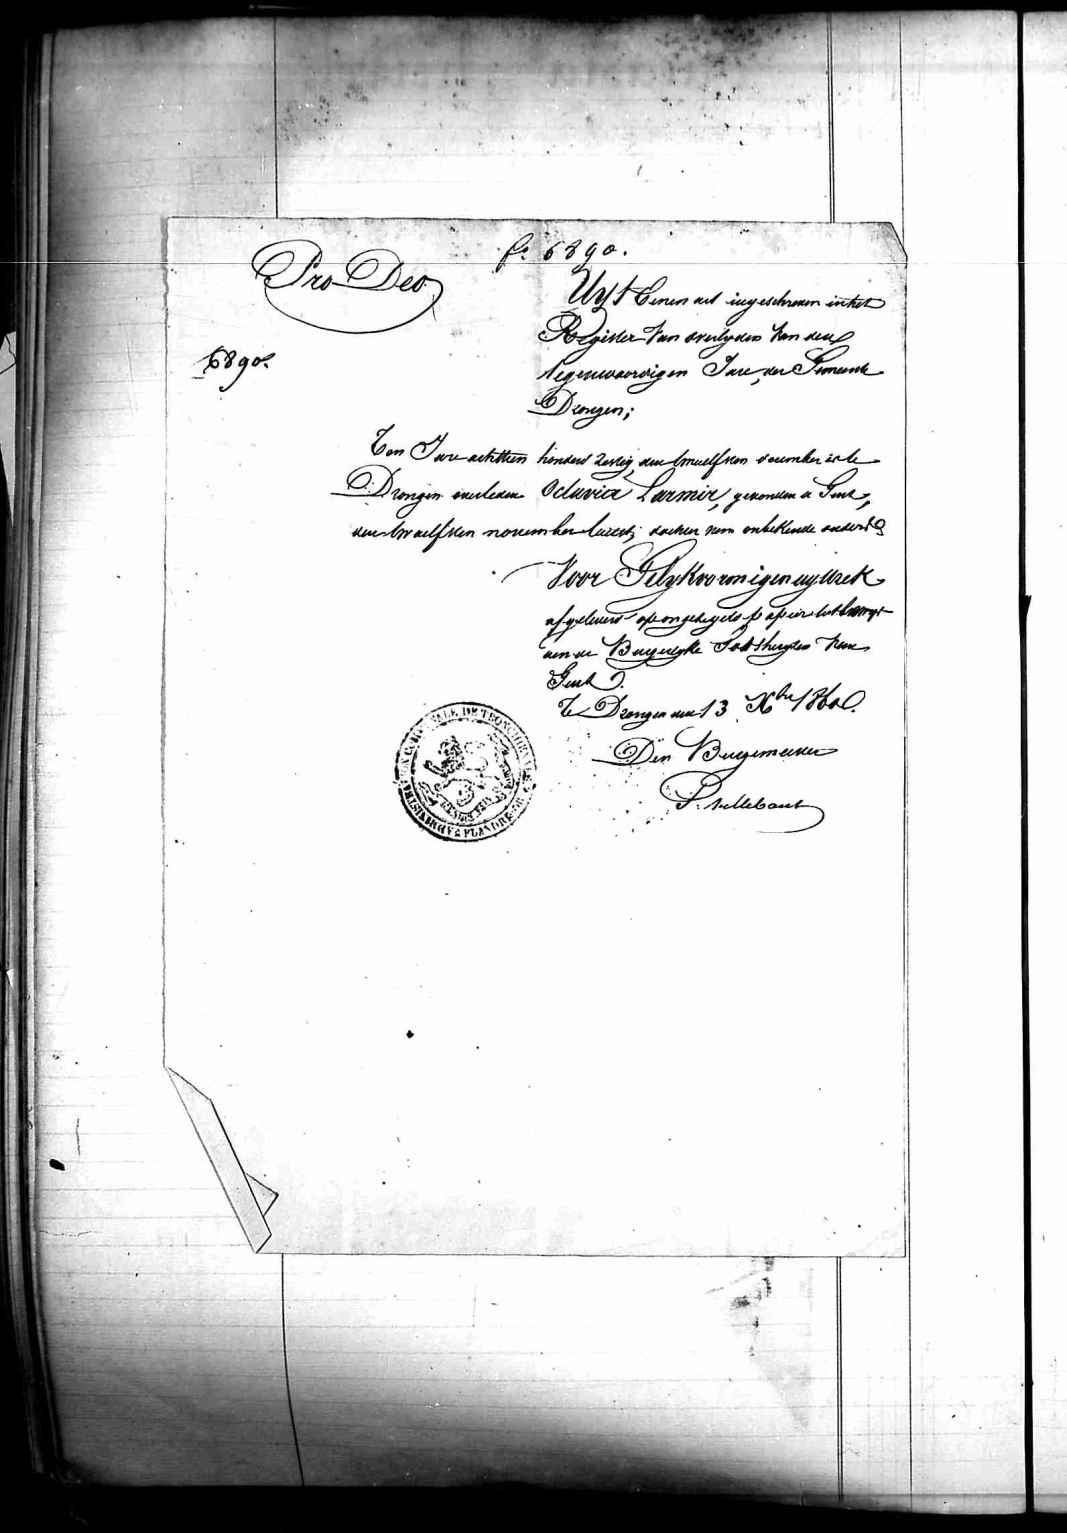 f.° 6890.
Pro Deo
Uyt eenen act ingeschreven in het
Register van overlyden van den
6890.
tegenwoordigen Jare, der Gemeente
Drongen;
Ten Jare achttien honderd zestig, den twaelfsten december is te
Drongen overleden Octavia Larmir, gevonden te Gent,
den twaelfsten november laetst; dochter van onbekende ouders
Voor Gelykvormigen uyttrek
afgelevert op ongezegeld papier tot
aen de Burgerlyke Godshuyzen van
Gent.
Te Drongen den 13 Xbre 1860.
Den Burgemeester